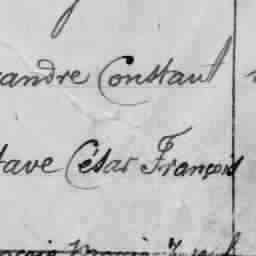 andre Constant
tave César François